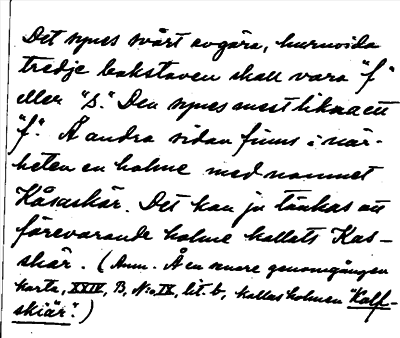 Det synes svårt avgöra, huruvida
tredje bokstaven skall vara "f"
eller "s." Den synes mest likna ett
"f". Å andra sidan finns i när-
heten en holme med namnet
Kåsaskär. Det kan ju tänkas att
förevarande holme kallats Kas-
skär. (Anm. Å en senare genomgången
karta, XXIV, B, No IX, lit. b, kallas holmen "Kalf-
skiär".)